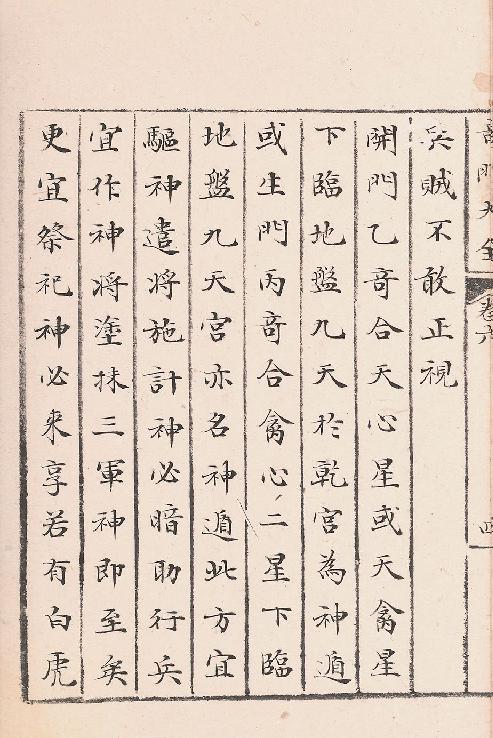 奇門大全
卷六
四
兵賊不敢正視
開門乙奇合天心星或天禽星
下臨地盤九天於乾宮為神遁
或生門丙奇合禽心二星下臨
地盤九天宮亦名神遁此方宜
驅神遣將施計神必暗助行兵
宜作神將塗抹三軍神即至矣
更宜祭祀神必來享若有白虎